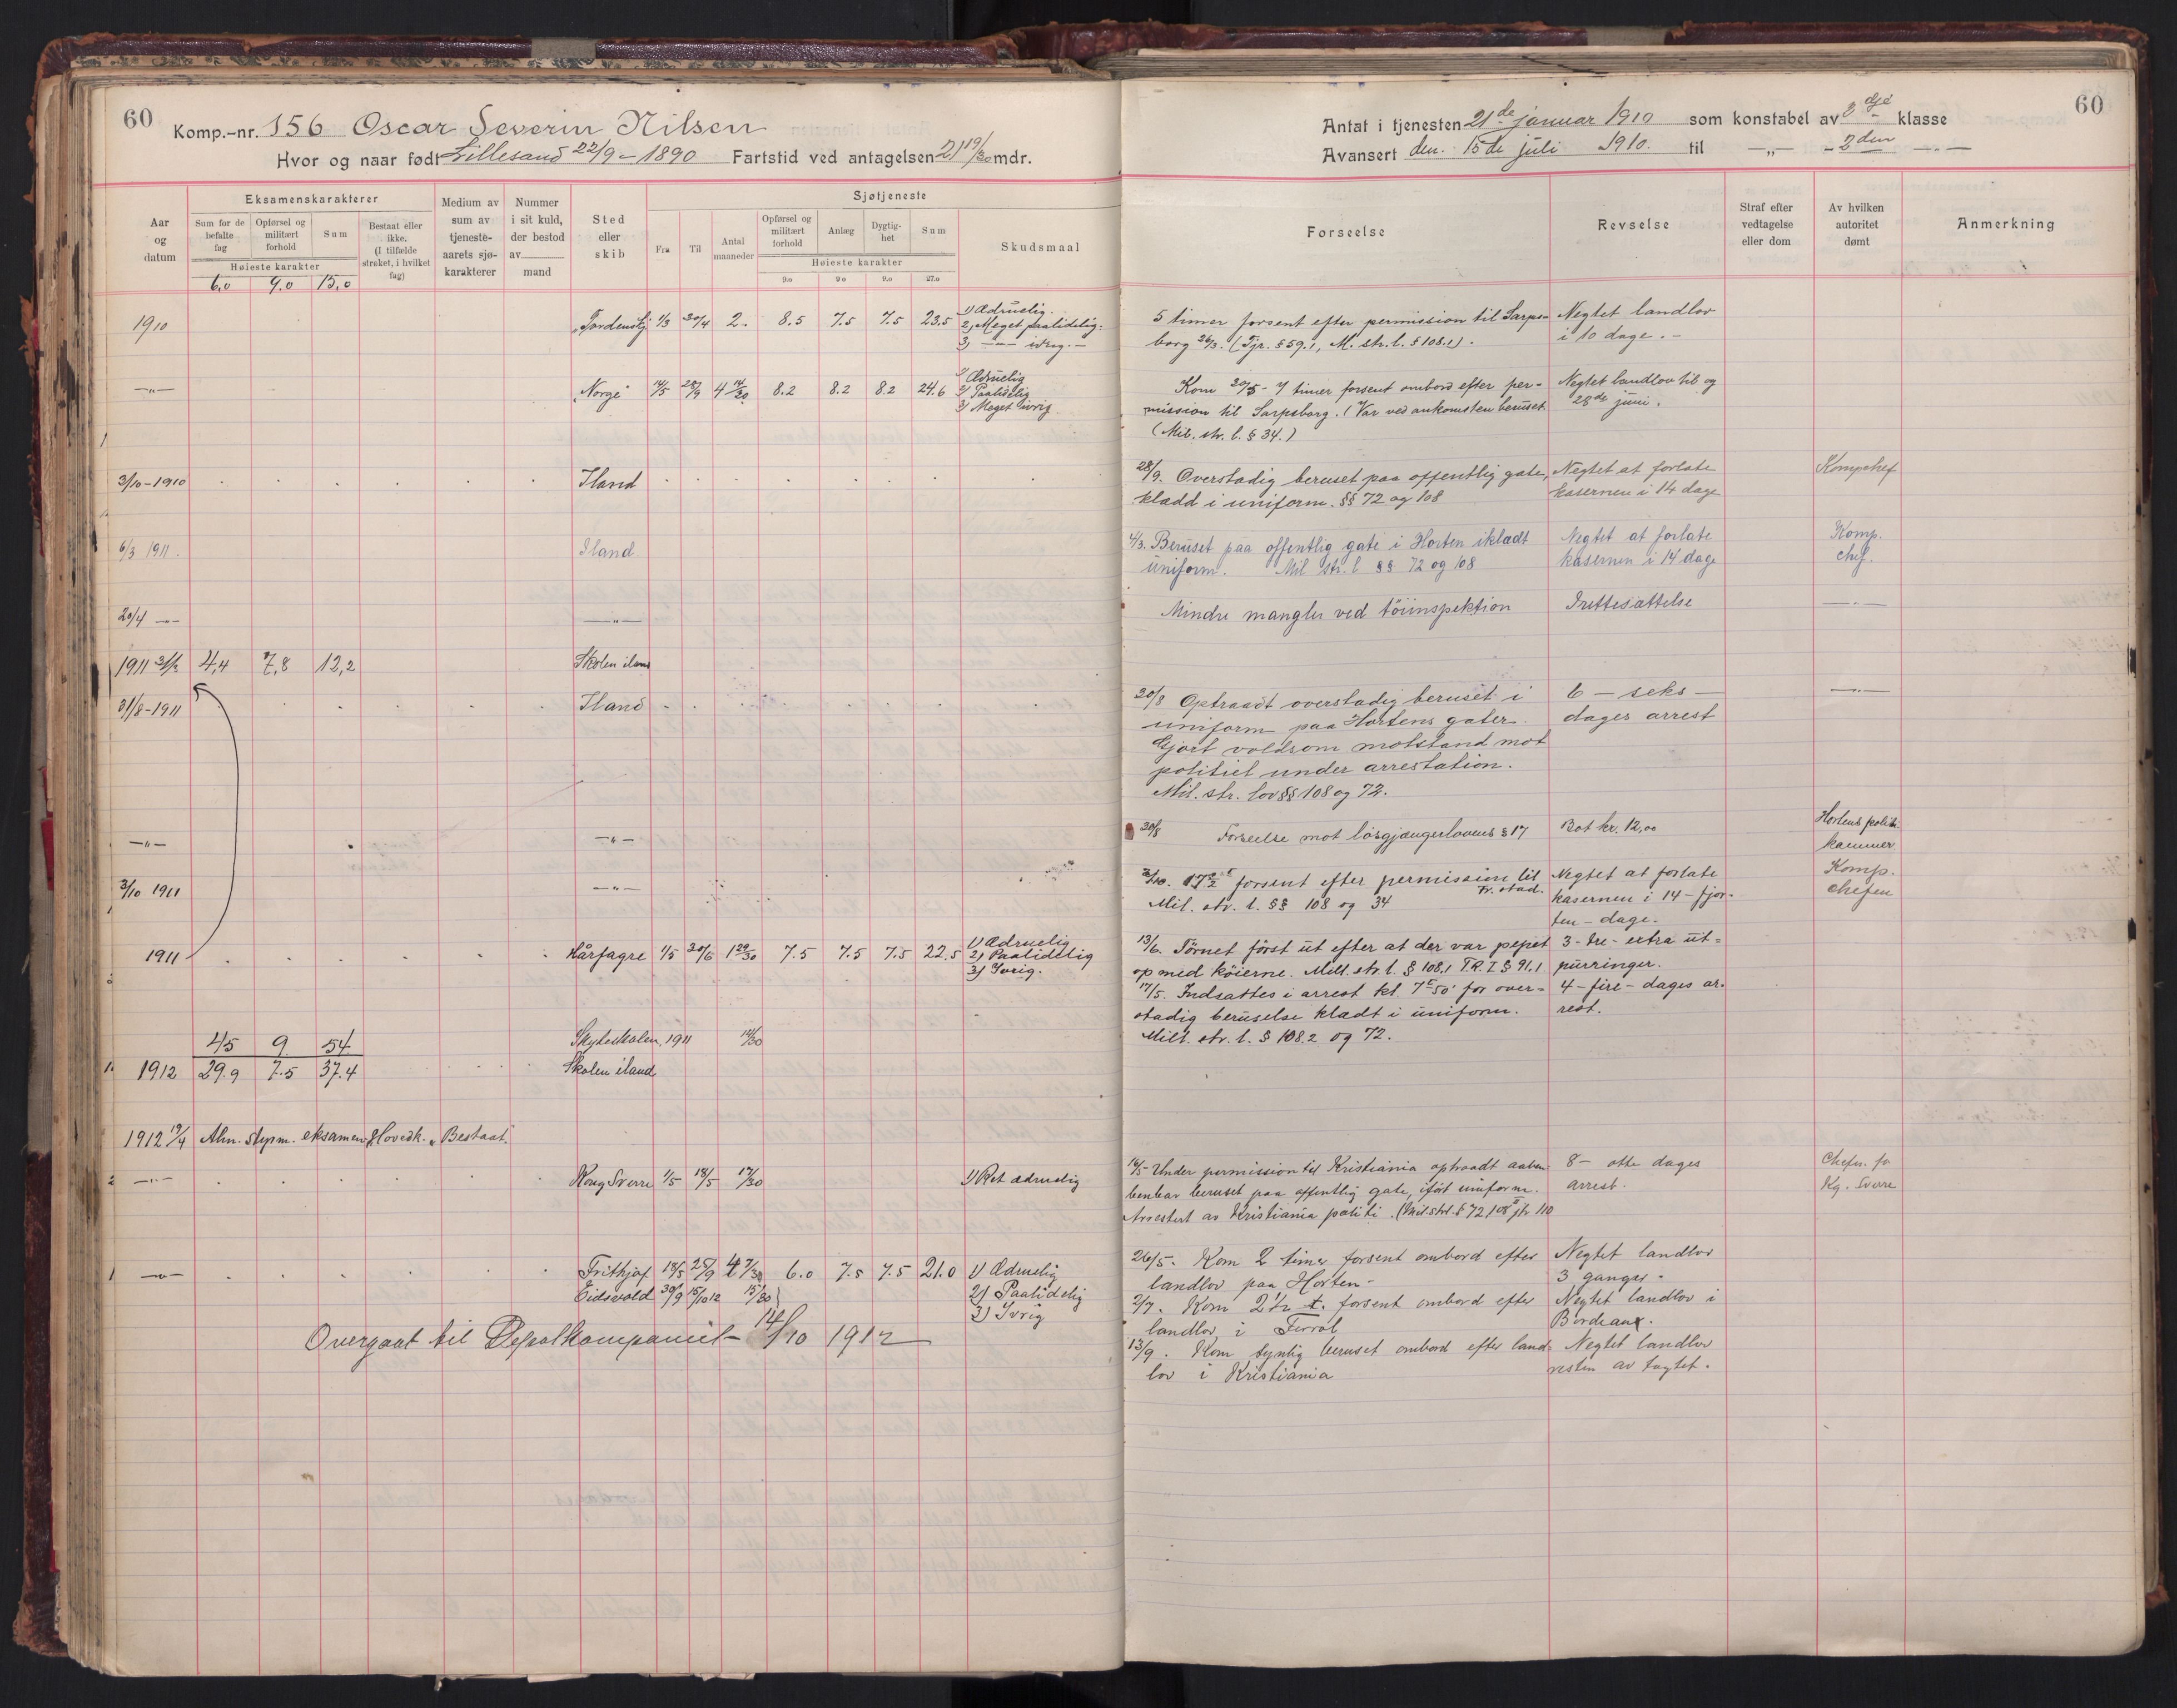 60
Komp.-nr. 156 Oscar Severin Nilsen
Hvor og naar født Lillesand 22/9 - 1890 Fartstid ved antagelsen 21 19/30 mdr.
Aar og datum
Eksamenskarakterer
Sum for de befalte fag
Opførsel og militært forhold
Sum
Bestaat eller ikke. (I tilfælde strøket, i hvilket fag)
Høieste karakter
6,0 9.0 15,0
Medium av sum av tjeneste-aarets sjø-karakterer
Nummer i sit kuld, der bestod av mand
Sted eller skib
Sjøtjeneste
Fra Til Antal maaneder
Opførsel og militært forhold
Anlæg
Dygtig-het
Sum
Høieste karakter
9.0 9.0 9.0 27.0
Skudsmaal
1910 "Tordenskj. 1/3 30/4 2. 8.5 7.5 7.5 23.5 1) Ædruelig.
2) Meget paalidelig.
3) —"— ivrig.—
—"— "Norge" 14/5 28/9 4 14/30 8.2 8.2 8.2 24.6 1) Ædruelig
2) Paalidelig
3) Meget ivrig
3/10-1910 Iland
6/3 1911. Iland
20/4 —"— —"—
1911 31/3 4,4 7,8 12,2 Skolen iland
31/8-1911 Iland
—"— —"—
3/10 1911 —"—
1911 Hårfagre 1/5 30/6 1 29/30 7.5 7.5 7.5 22.5 1) Ædruelig
2) Paalidelig
3) Ivrig.
45 9 54 Skyteskolen, 1911 14/30
1912 29.9 7.5 37.4 Skolen iland
1912 19/4 Alm. styrm. eksamen, Hovedk. "Bestaat".
—"— Kong Sverre 1/5 18/5 17/30 1) Ret ædruelig
—"— Frithjof 18/5 25/9 4 7/30 6.0 7.5 7.5 21.0 1) Ædruelig
Eidsvold 30/9 15/10 12 15/30 2) Paalidelig
3) Ivrig
Overgaat til Depotkompaniet 14/10 1912
60
Antat i tjenesten 21de januar 1910 som konstabel av 3dje klasse
Avansert den. 15de juli 1910. til —"— - 2den —"—
Forseelse
Revselse
Straf efter vedtagelse eller dom
Av hvilken autoritet dømt
Anmerkning
5 timer forsent efter permission til Sarps- Negtet landlov
borg 26/3. (Tjr. §59.1, M. str. l. §108.1). i 10 dage.—
Kom 20/5 - 7 timer forsent ombord efter per- Negtet landlov til og
mission til Sarpsborg. (Var ved ankomsten beruset. 28de juni.
(Mil. str. l. § 34.)
28/9. Overstadig beruset paa offentlig gate, Negtet at forlate Kompchef
klædd i uniform. §§ 72 og 108 kasernen i 14 dage
4/3. Beruset paa offentlig gate i Horten iklædt Negtet at forlate Komp.
uniform. Mil str. l §§ 72 og 108 kasernen i 14 dage chef.
Mindre mangler ved töiinspektion Irettesættelse —"—
30/8 Optraadt overstadig beruset i 6 — seks — —"—
uniform paa Hortens gater. dages arrest
Gjort voldsom motstand mot
politiet under arrestation.
Mil. str. lov §§ 108 og 72.
30/8 Forseelse mot løsgjængerlovens § 17 Bot kr. 12,00 Hortens politi-
kammer
3/10. 17 1/2 t forsent efter permission til Fr.stad. Negtet at forlate Komp.
Mil. str. l. §§ 108 og 34 kasernen i 14 - fjor- chefen
ten - dage.
13/6. Tørnet först ut efter at der var pepet 3 - tre - extra ut-
op med köierne. Milt. str. l. § 108.1 T.R.I § 91.1 purringer.
17/5. Indsattes i arrest kl. 7 E 50' for over- 4 - fire - dages ar-
stadig beruselse klædt i uniform. rest.
Milt. str. l. § 108.2 og 72.
16/5 - Under permission til Kristiania optraadt aaben- 8 — otte dages Chefen fo
benbar beruset paa offentlig gate, iført uniform. arrest. Kg. Sverre
Arrestert av Kristiania politi. (Mil. strl. § 72, 108 II jfr 110
26/5 - Kom 2 timer forsent ombord efter Negtet landlov
landlov paa Horten - 3 ganger.
2/7. Kom 2 1/2 t. forsent ombord efter Negtet landlov i
landlov i Ferrol Bordeaux.
13/9. Kom synlig beruset ombord efter land- Negtet landlov
lov i Kristiania resten av togtet.